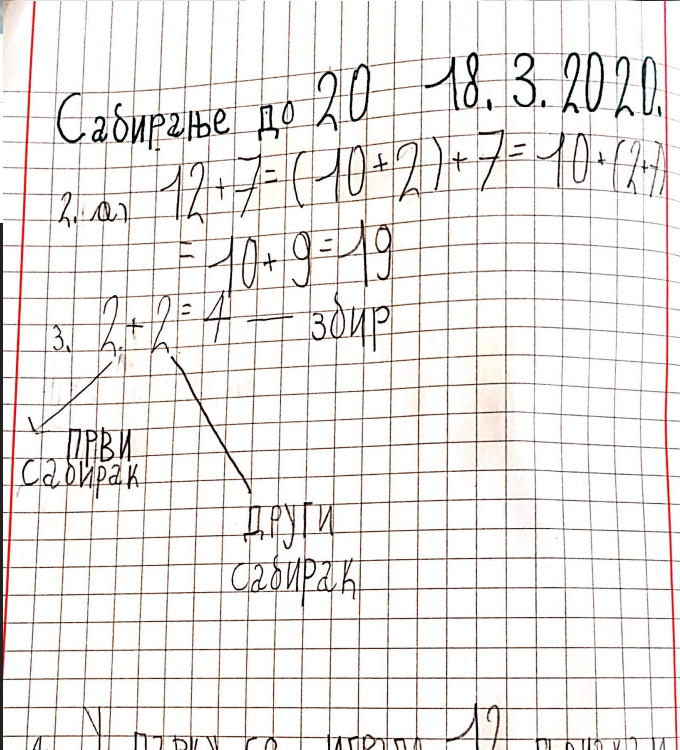 Сабирање до 20 18.3.2020.
2. а) 12+7=(10+2)+7=10+(2+7)
=10+9=19
3. 2+2=4 — збир
ПРВИ
сабирак
ДРУГИ
сабирак
У ПАРКУ СЕ ИГРАЛА 12